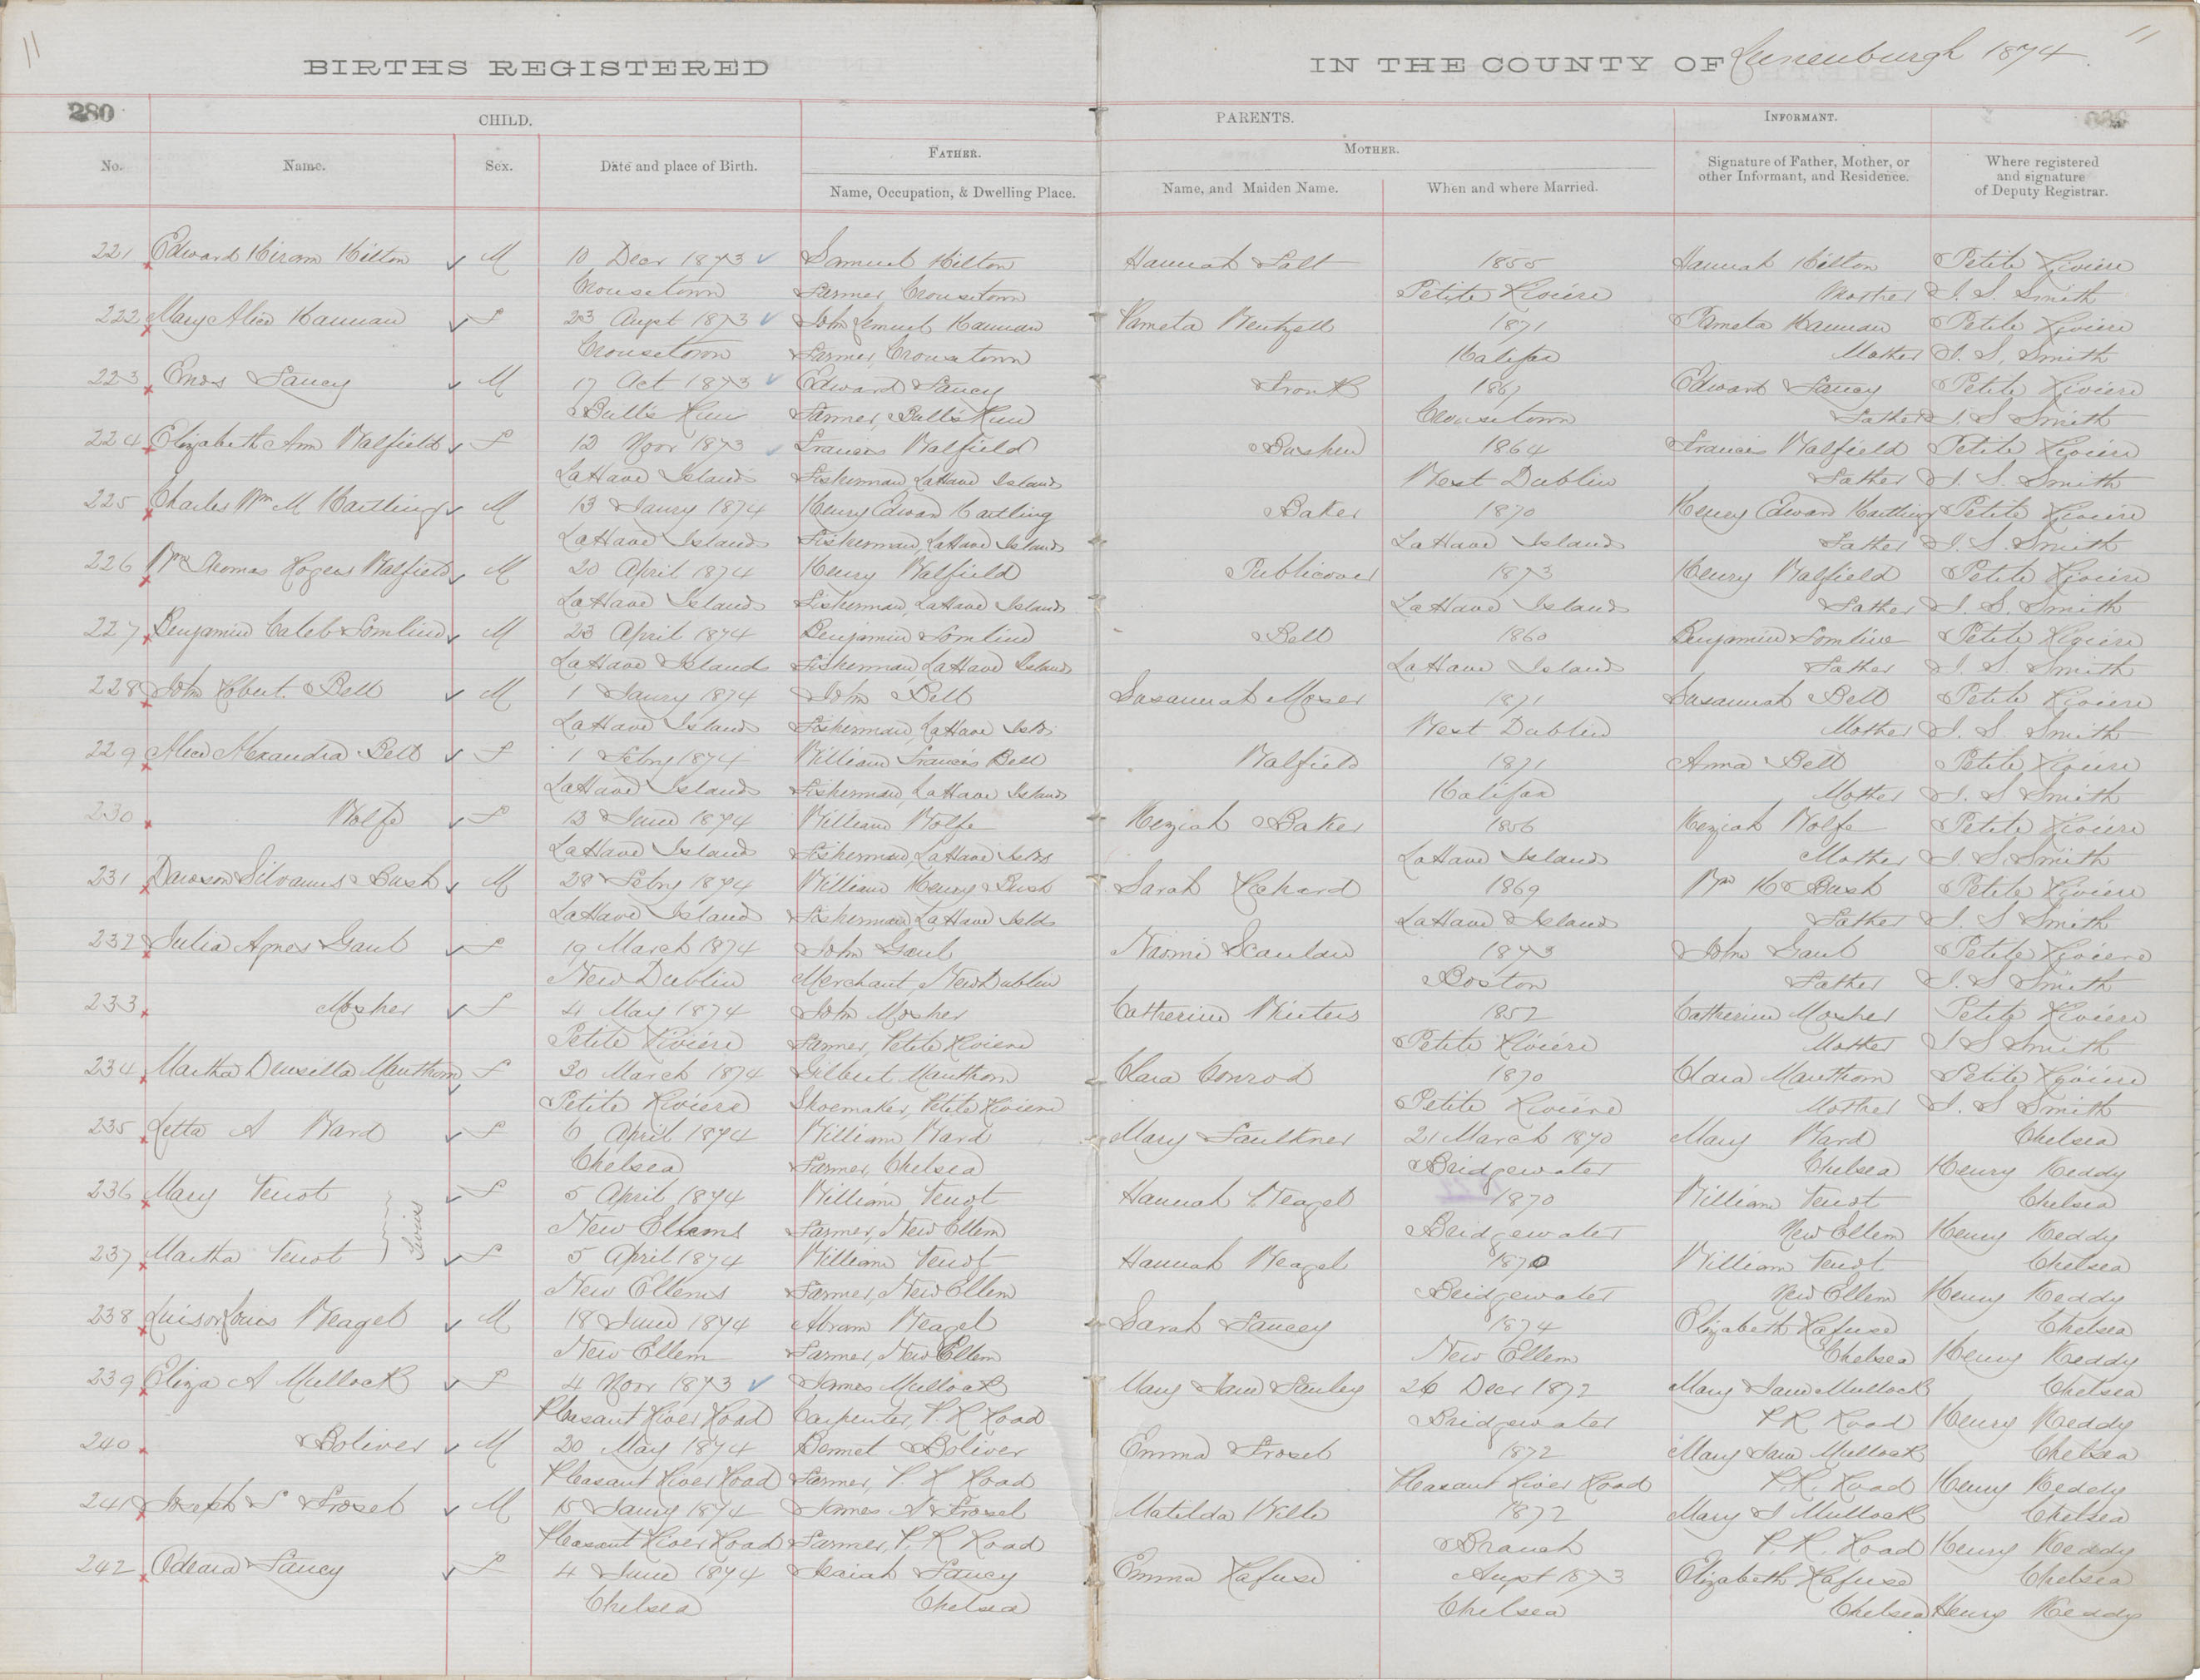 11
11
BIRTHS REGISTERED IN THE COUNTY OF Lunenburgh 1874.
280
CHILD. PARENTS. INFORMANT.
No. Name. Sex. Date and place of Birth. FATHER. MOTHER. Signature of Father, Mother, or other Informant, and Residence. Where registered and signature of Deputy Registrar.
Name, Occupation, & Dwelling Place. Name, and Maiden Name. When and where Married.
221 Edward Hiram Hilton M 10 Decr 1873 Samuel Hilton Hannah Salt 1855 Hannah Hilton Petite Riviere
Crousetown Farmer, Crousetown Petite Riviere Mother I. S. Smith
222 Mary Alice Hannan F 23 Augst 1873 John Lemuel Hannan Pameta Wentzell 1871 Pameta Hannan Petite Riviere
Crousetown Farmer, Crousetown Halifax Mother I. S. Smith
223 Enos Fancy M 17 Oct 1873 Edward Fancy Fronk 1867 Edward Fancy Petite Riviere
Bulls Run Farmer, Bulls Run Crousetown Father I. S Smith
224 Elizabeth Ann Walfield F 12 Novr 1873 Francis Walfield Bushen 1864 Francis Walfield Petite Riviere
LaHave Islands Fisherman LaHave Islands West Dublin Father I. S. Smith
225 Charles Wm M Hartling M 13 Janry 1874 Henry Edward Hartling Baker 1870 Henry Edward Hartling Petite Riviere
LaHave Islands Fisherman, LaHave Islands LaHave Islands Father I. S. Smith
226 Wm Thomas Rogers Walfield M 20 April 1874 Henry Walfield Publicover 1873 Henry Walfield Petite Riviere
LaHave Islands Fisherman, LaHave Islands LaHave Islands Father I. S. Smith
227 Benjamin Caleb Romlin M 23 April 1874 Benjamin Romlin Bell 1860 Benjamin Romline Petite Riviere
LaHave Islands Fisherman, LaHave Islands LaHave Islands Father I. S. Smith
228 John Robert Bell M 1 Janry 1874 John Bell Susannah Moser 1871 Susannah Bell Petite Riviere
LaHave Islands Fisherman, LaHave Islds West Dublin Mother I. S. Smith
229 Alice Alexandra Bell F 1 Febry 1874 William Francis Bell Walfield 1871 Anna Bell Petite Riviere
LaHave Islands Fisherman, LaHave Islands Halifax Mother I. S Smith
230 Wolfe F 13 June 1874 William Wolfe Keziah Baker 1856 Keziah Wolfe Petite Riviere
LaHave Islands Fisherman, LaHave Islds LaHave Islands Mother I. S. Smith
231 Dawson Silvanus Bush M 28 Febry 1874 William Henry Bush Sarah Richard 1869 Wm H Bush Petite Riviere
LaHave Islands Fisherman LaHave Islds LaHave Islands Father I. S Smith
232 Julia Agnes Gaul F 19 March 1874 John Gaul Naomi Scanlan 1873 John Gaul Petite Riviere
New Dublin Merchant, New Dublin Boston Father I. S Smith
233 Mosher F 4 May 1874 John Mosher Catherine Winters 1852 Catherine Mosher Petite Riviere
Petite Riviere Farmer, Petite Riviere Petite Riviere Mother I S Smith
234 Martha Drusilla Manthorn F 30 March 1874 Gilbert Manthorn Clara Conrod 1870 Clara Manthorn Petite Riviere
Petite Riviere Shoemaker, Petite Riviere Petite Riviere Mother I. S Smith
235 Letta A Ward F 6 April 1874 William Ward Mary Faulkner 21 March 1870 Mary Ward Chelsea
Chelsea Farmer, Chelsea Bridgewater Chelsea Henry Keddy
236 Mary Veinot F 5 April 1874 William Veinot Hannah Weagel 1870 William Veinot Chelsea
Twins
New Ellems Farmer, New Ellem Bridgewater New Ellem Henry Keddy
237 Martha Veinot F 5 April 1874 William Veinot Hannah Weagel 1870 William Veinot Chelsea
New Ellems Farmer, New Ellem Bridgewater New Ellem Henry Keddy
238 Weagel M 18 June 1874 Abram Weagel Sarah Fancey 1874 Elizabeth Rafuse Chelsea
New Ellem Farmer, New Ellem New Ellem Chelsea Henry Keddy
239 Eliza A Mullock F 4 Novr 1873 James Mullock Mary Jane 26 Decr 1872 Mary Jane Mullock Chelsea
Pleasant River Road Carpenter, P. R Road Bridgewater P R Road Henry Keddy
240 Boliver M 20 May 1874 Bennet Boliver Emma Frosel 1872 Mary Jane Mullock Chelsea
Pleasant River Road Farmer, P. R Road Pleasant River Road P. R. Road Henry Keddy
241 Joseph S Frosel M 15 Janry 1874 James A Frosel Matilda Wille 1872 Mary J Mullock Chelsea
Pleasant River Road Farmer, P. R Road Branch P. R. Road Henry Keddy
242 Fancy F 4 June 1874 Isaiah Fancy Emma Rafuse Augst 1873 Elizabeth Rafuse Chelsea
Chelsea Chelsea Chelsea Chelsea Henry Keddy